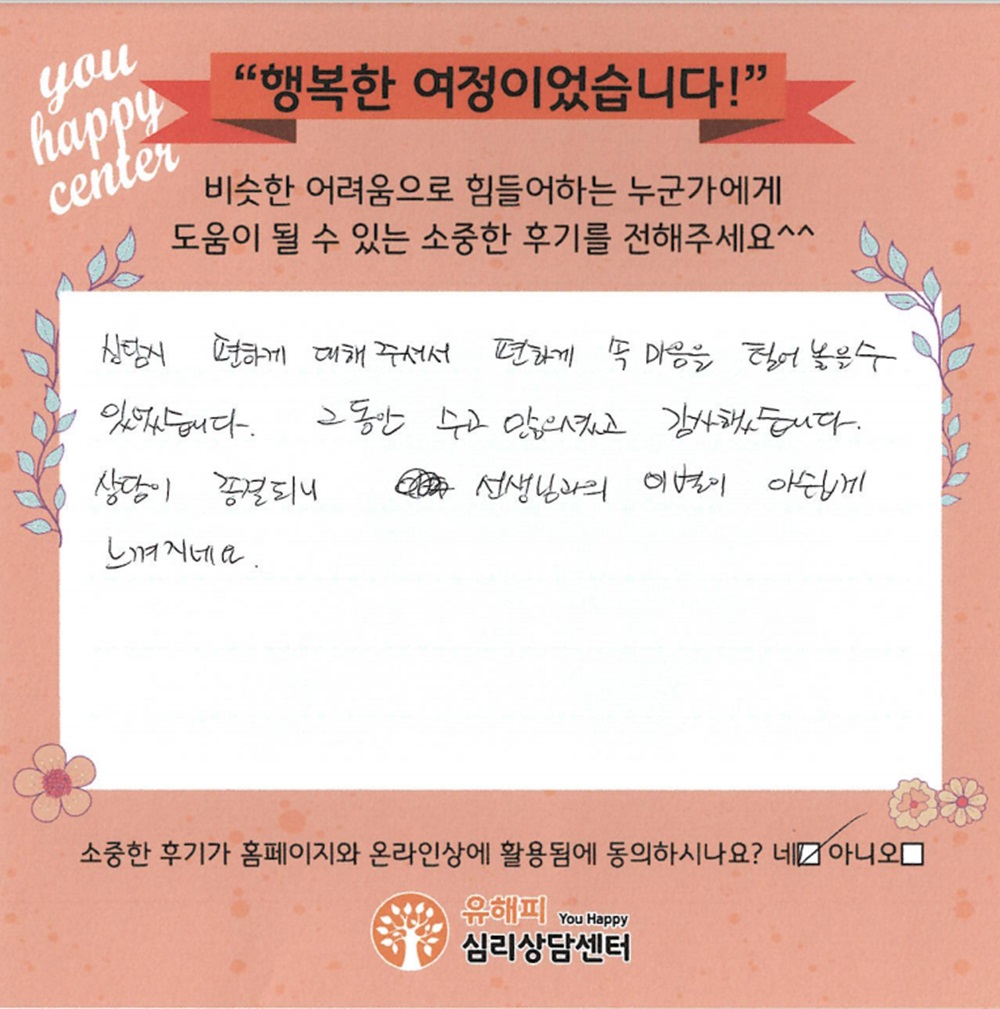 you
happy
center
“행복한 여정이었습니다!”
비슷한 어려움으로 힘들어하는 누군가에게
도움이 될 수 있는 소중한 후기를 전해주세요^^
상담시 편하게 대해 주셔서 편하게 속 마음을 털어 놓을 수
있었습니다. 그동안 수고 많으셨고 감사했습니다.
상담이 종결되니 선생님과의 이별이 아쉽게
느껴지네요.
소중한 후기가 홈페이지와 온라인상에 활용됨에 동의하시나요? 네 아니오
유해피 You Happy
심리상담센터